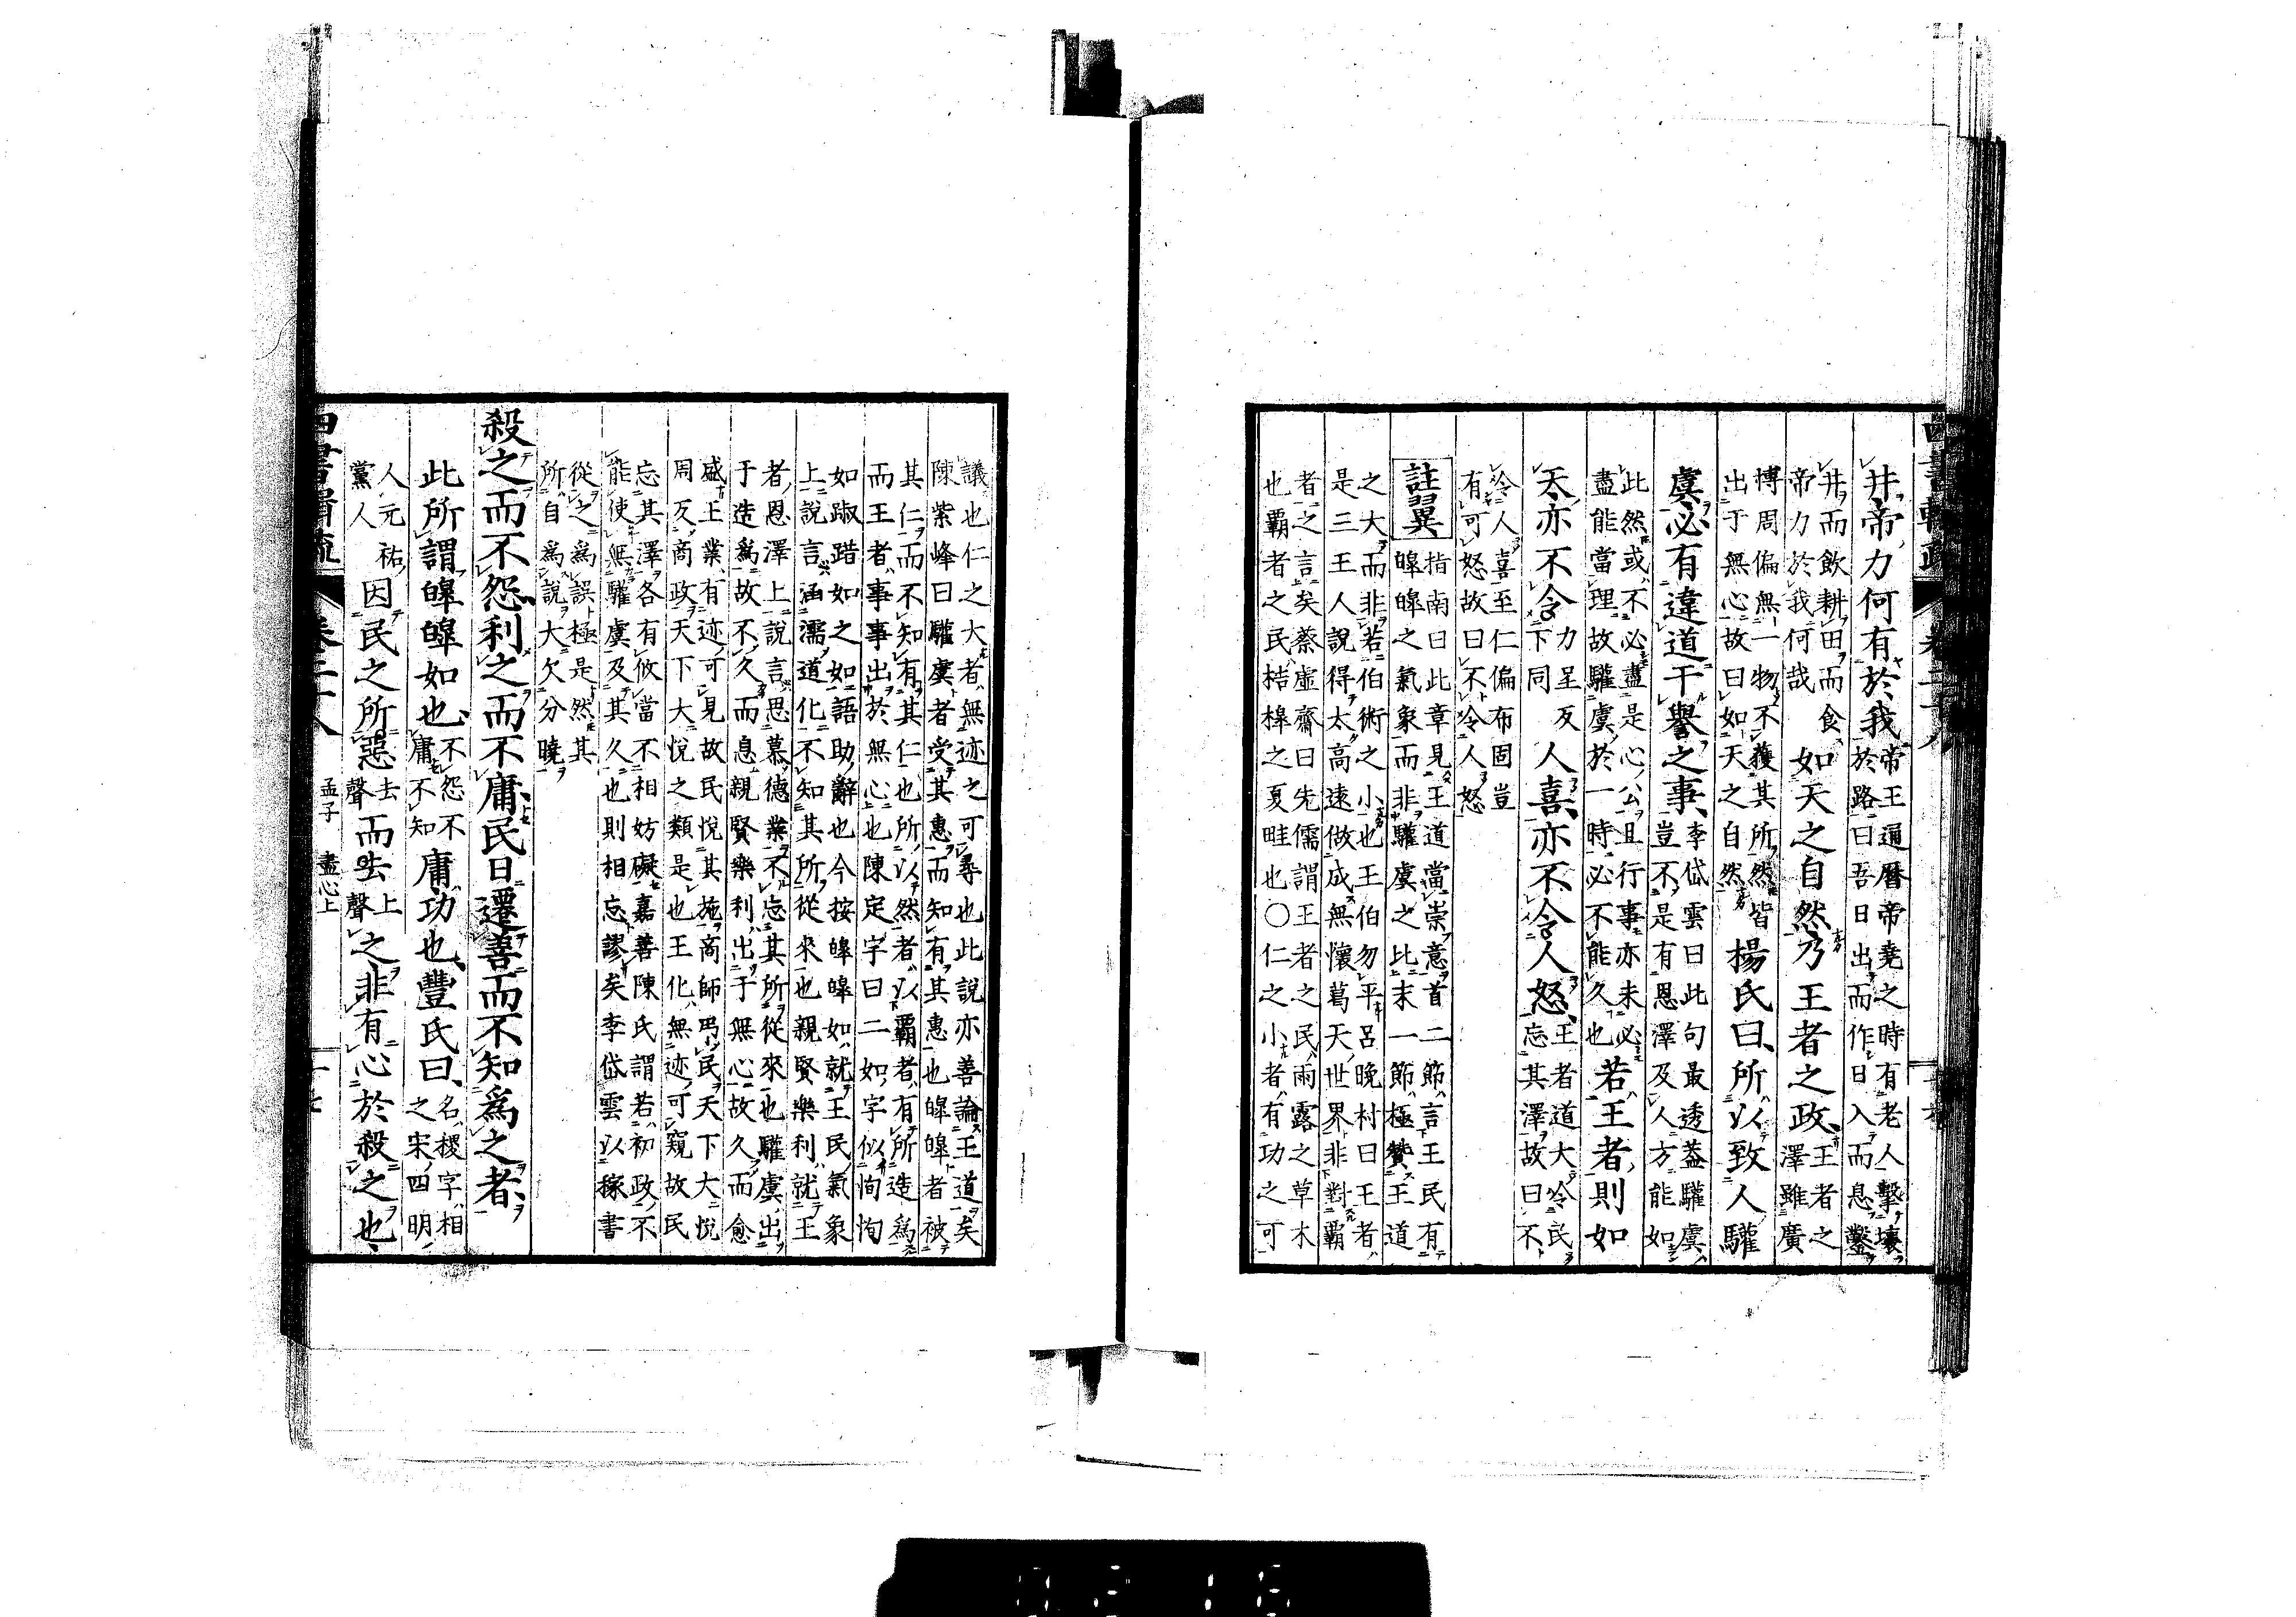 井帝力何有於我
帝王通曆帝堯之時有老人擊壤
於路曰吾日出而作日入而息鑿
井而飲耕田而食
帝力於我何哉
如天之自然乃王者之政
王者之
澤雖廣
博周偏無一物不獲其所然皆
出于無心故曰如天之自然
楊氏曰所以致人驩
虞必有違道干譽之事
李岱雲曰此句最透蓋驩虞
豈不是有恩澤及人方能如
此然或不必盡是心公且行事亦未必
盡能當理故驩虞於一時必不能久也
若王者則如
天亦不令
力呈反
下同
人喜亦不令人怒
王者道大令民
忘其澤故曰不
令人喜至仁偏布固豈
有可怒故曰不令人怒
註翼
指南曰此章見王道當崇意首二節言王民有
皥皥之氣象而非驩虞之比末一節極贊王道
之大而非若伯術之小也王伯勿平呂晚村曰王者
是三王人說得太高遠做成無懷葛天世界非對霸
者之言矣蔡虛齋曰先儒謂王者之民雨露之草木
也霸者之民桔橰之夏畦也〇仁之小者有功之可
議也仁之大者無迹之可尋也此說亦善論王道矣
陳紫峰曰驩虞者受其惠而知有其惠也皥皥者被
其仁而不知有其仁也所以然者以霸者有所造爲
而王者事事出於無心也陳定宇曰二如字似恂恂
如踧踖如之如語助辭也今按皥皥如就王民氣象
上說言涵濡道化不知其所從來也親賢樂利就王
者恩澤上說言思慕德業不忘其所從來也驩虞出
于造爲故不久而息親賢樂利出于無心故久而愈
盛王業有迹可見故民悅其施商師弔民天下大悅
周反商政天下大悅之類是也王化無迹可窺故民
忘其澤各有攸當不相妨礙嘉善陳氏謂若初政不
能使無驩虞及其久也則相忘謬矣李岱雲以稼書
從之爲誤極是然其
所自爲說大欠分曉
殺之而不怨利之而不庸民日遷善而不知爲之者
此所謂皥皥如也
不怨不
庸不知
庸功也豐氏曰
名稷字相
之宋四明
人元祐
黨人
因民之所惡
去
聲
而去
上
聲
之非有心於殺之也
孟子 盡心上